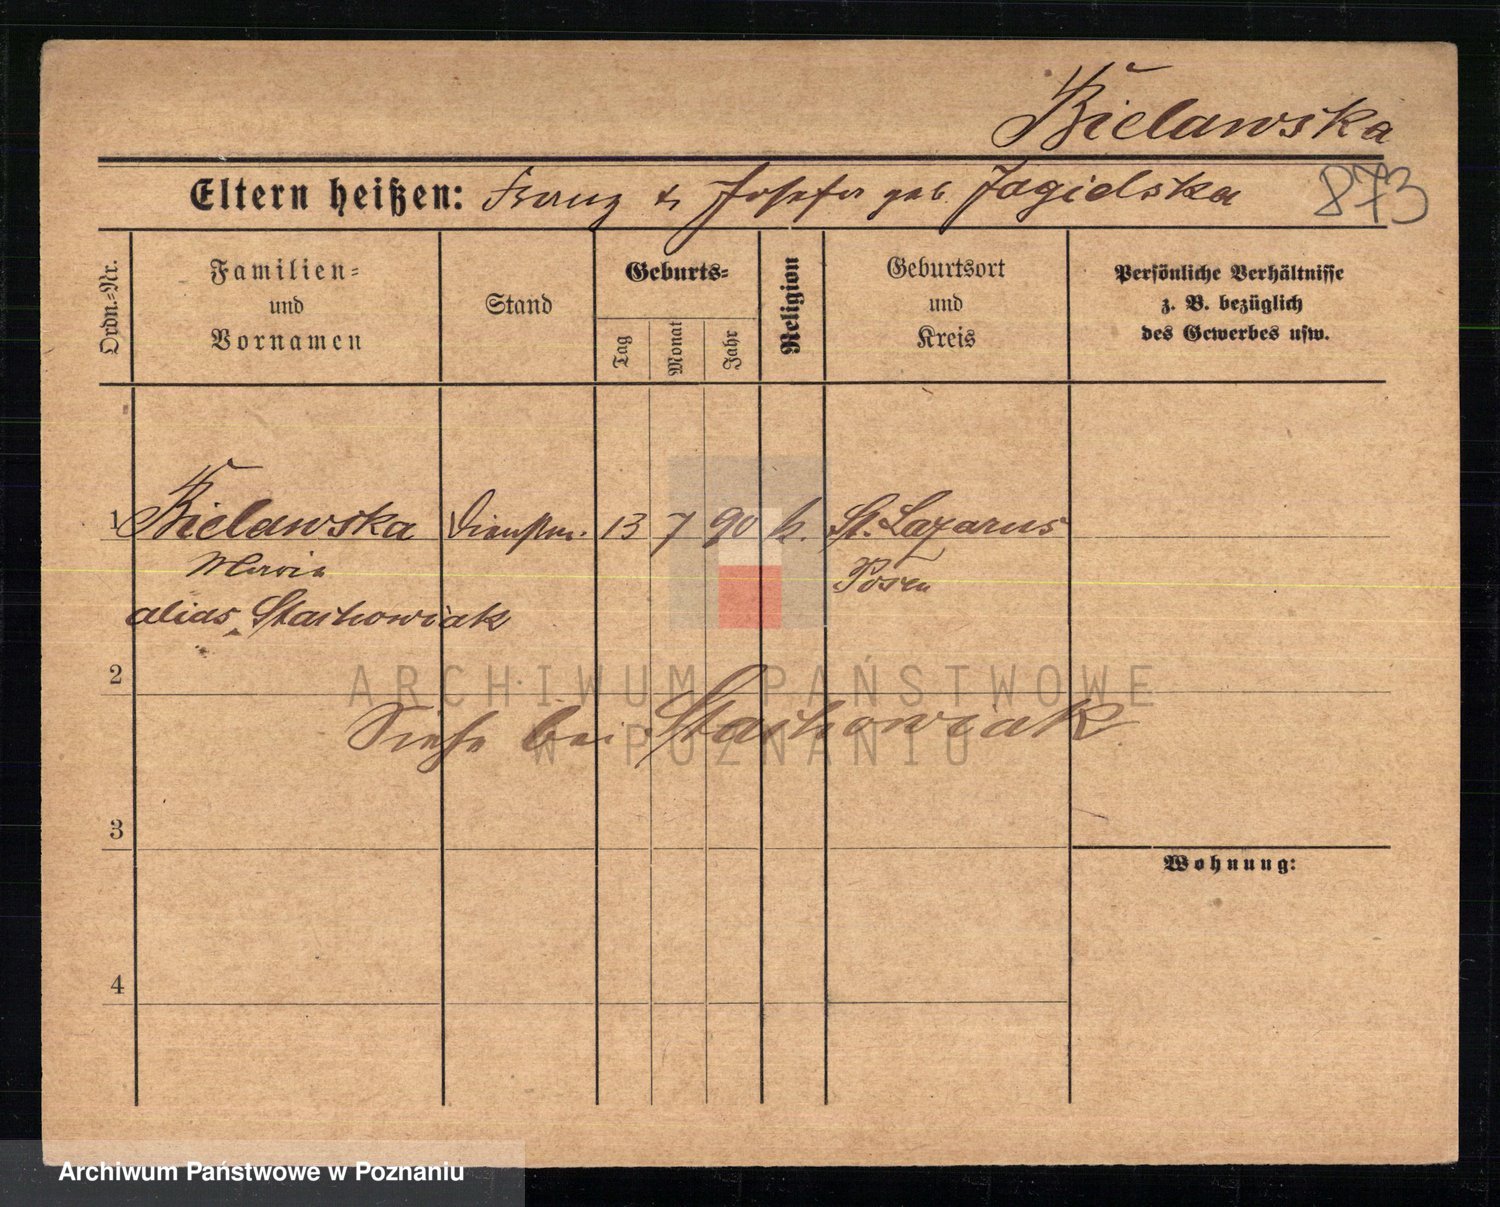 Bielawska
Eltern heißen: Franz u. Josefa geb. Jagielska
873
Ordn.-Nr.
Familien-
und
Vornamen
Stand
Geburts-
Tag
Monat
Jahr
Religion
Geburtsort
und
Kreis
Persönliche Verhältnisse
z. B. bezüglich
des Gewerbes usw.
1 Bielawska Dienstm. 13 7 90 k. St. Lazarus
Maria Posen
alias Stachowiak
2
ARCHIWUM PAŃSTWOWE
Siehe bei Stachowiak
W POZNANIU
3
Wohnung:
4
Archiwum Państwowe w Poznaniu